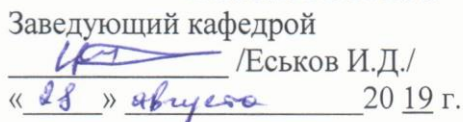 Заведующий кафедрой
/Еськов И.Д./
« 28 » августа 20 19 г.